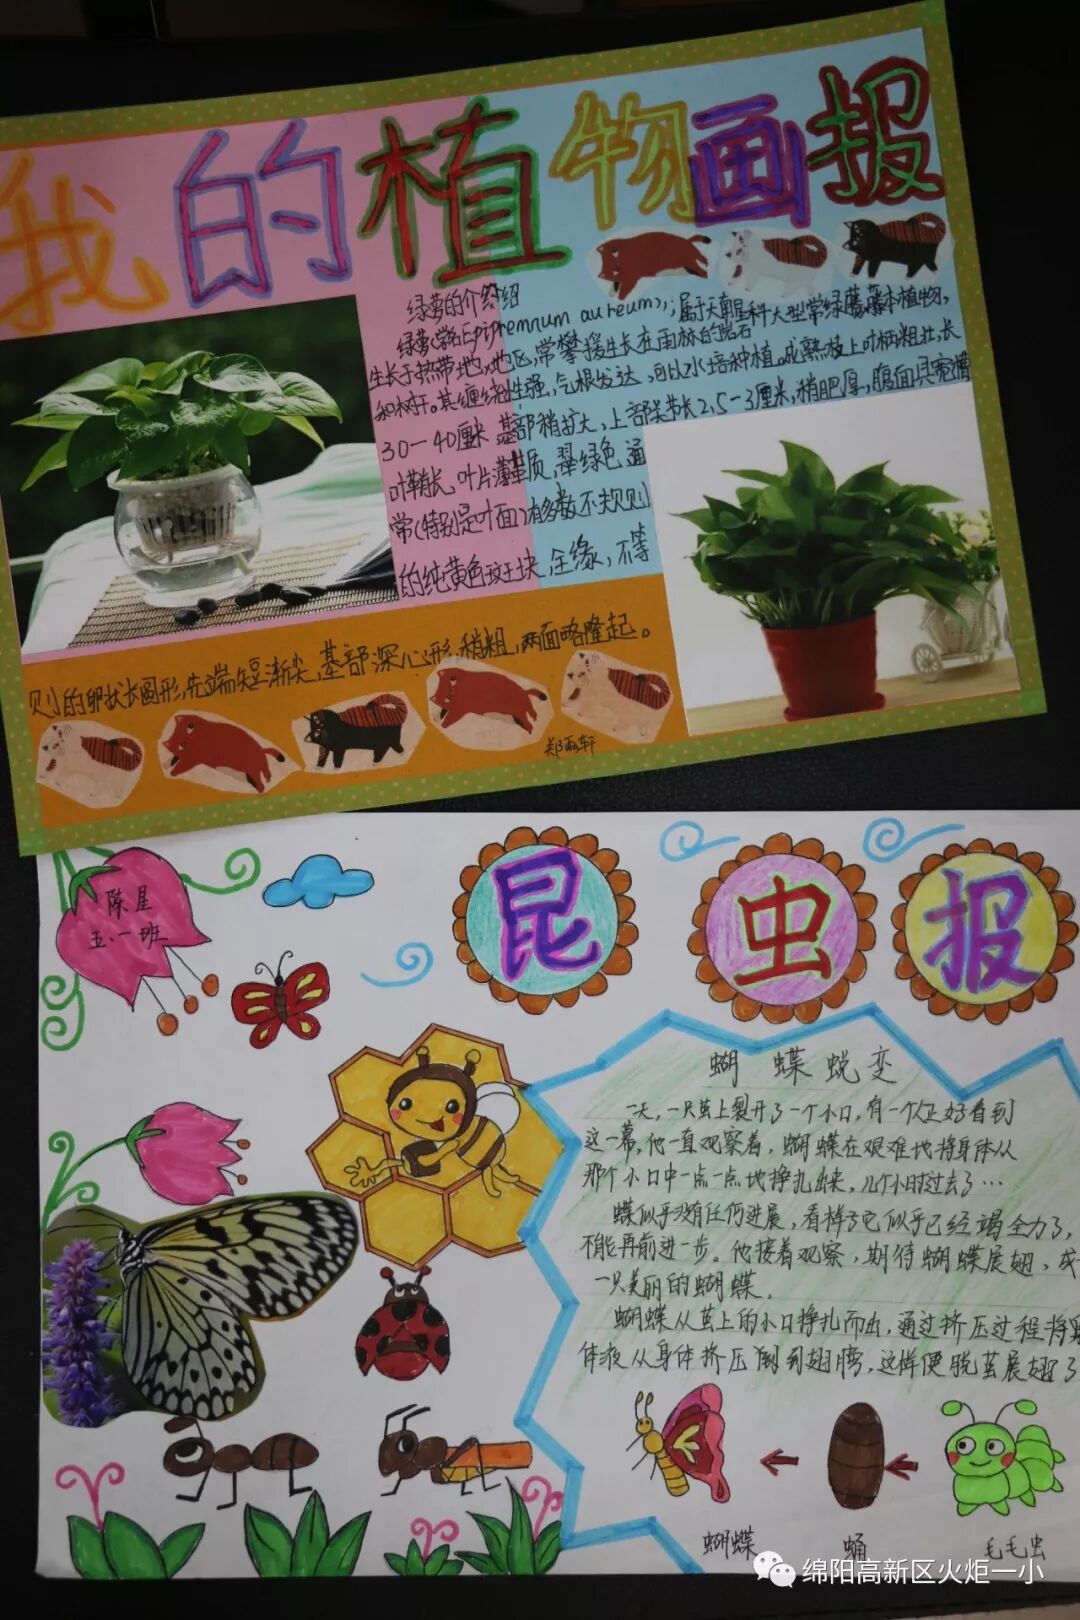 我的植物画报
绿萝的介绍
绿萝(学名Epipremnum aureum),属于天南星科大型常绿藤本植物,
生长于热带地区,常攀援生长在雨林的岩石
和树干。其缠绕性强,气根发达,可以水培种植。成熟枝上叶柄粗壮,长
30—40厘米,基部稍扩大,上部关节长2.5—3厘米,稍肥厚,腹面具宽槽
叶鞘长,叶片薄革质,翠绿色,通
常(特别是叶面)有多数不规则
的纯黄色斑块,全缘,不等
则的卵状长圆形,先端短渐尖,基部深心形,稍粗,两面略隆起。
郑雨轩
昆虫报
陈星
五.一班
蝴蝶蜕变
一天,一只茧上裂开了一个小口,有一个人正好看到
这一幕,他一直观察着,蝴蝶在艰难地将身体从
那个小口中一点一点地挣扎出来,几个小时过去了…
蝶似乎没有任何进展,看样子它似乎已经竭全力了,
不能再前进一步。他接着观察,期待蝴蝶展翅,成
一只美丽的蝴蝶。
蝴蝶从茧上的小口挣扎而出,通过挤压过程将
体液从身体挤压到翅膀,这样便脱茧展翅了
蝴蝶
蛹
毛毛虫
绵阳高新区火炬一小